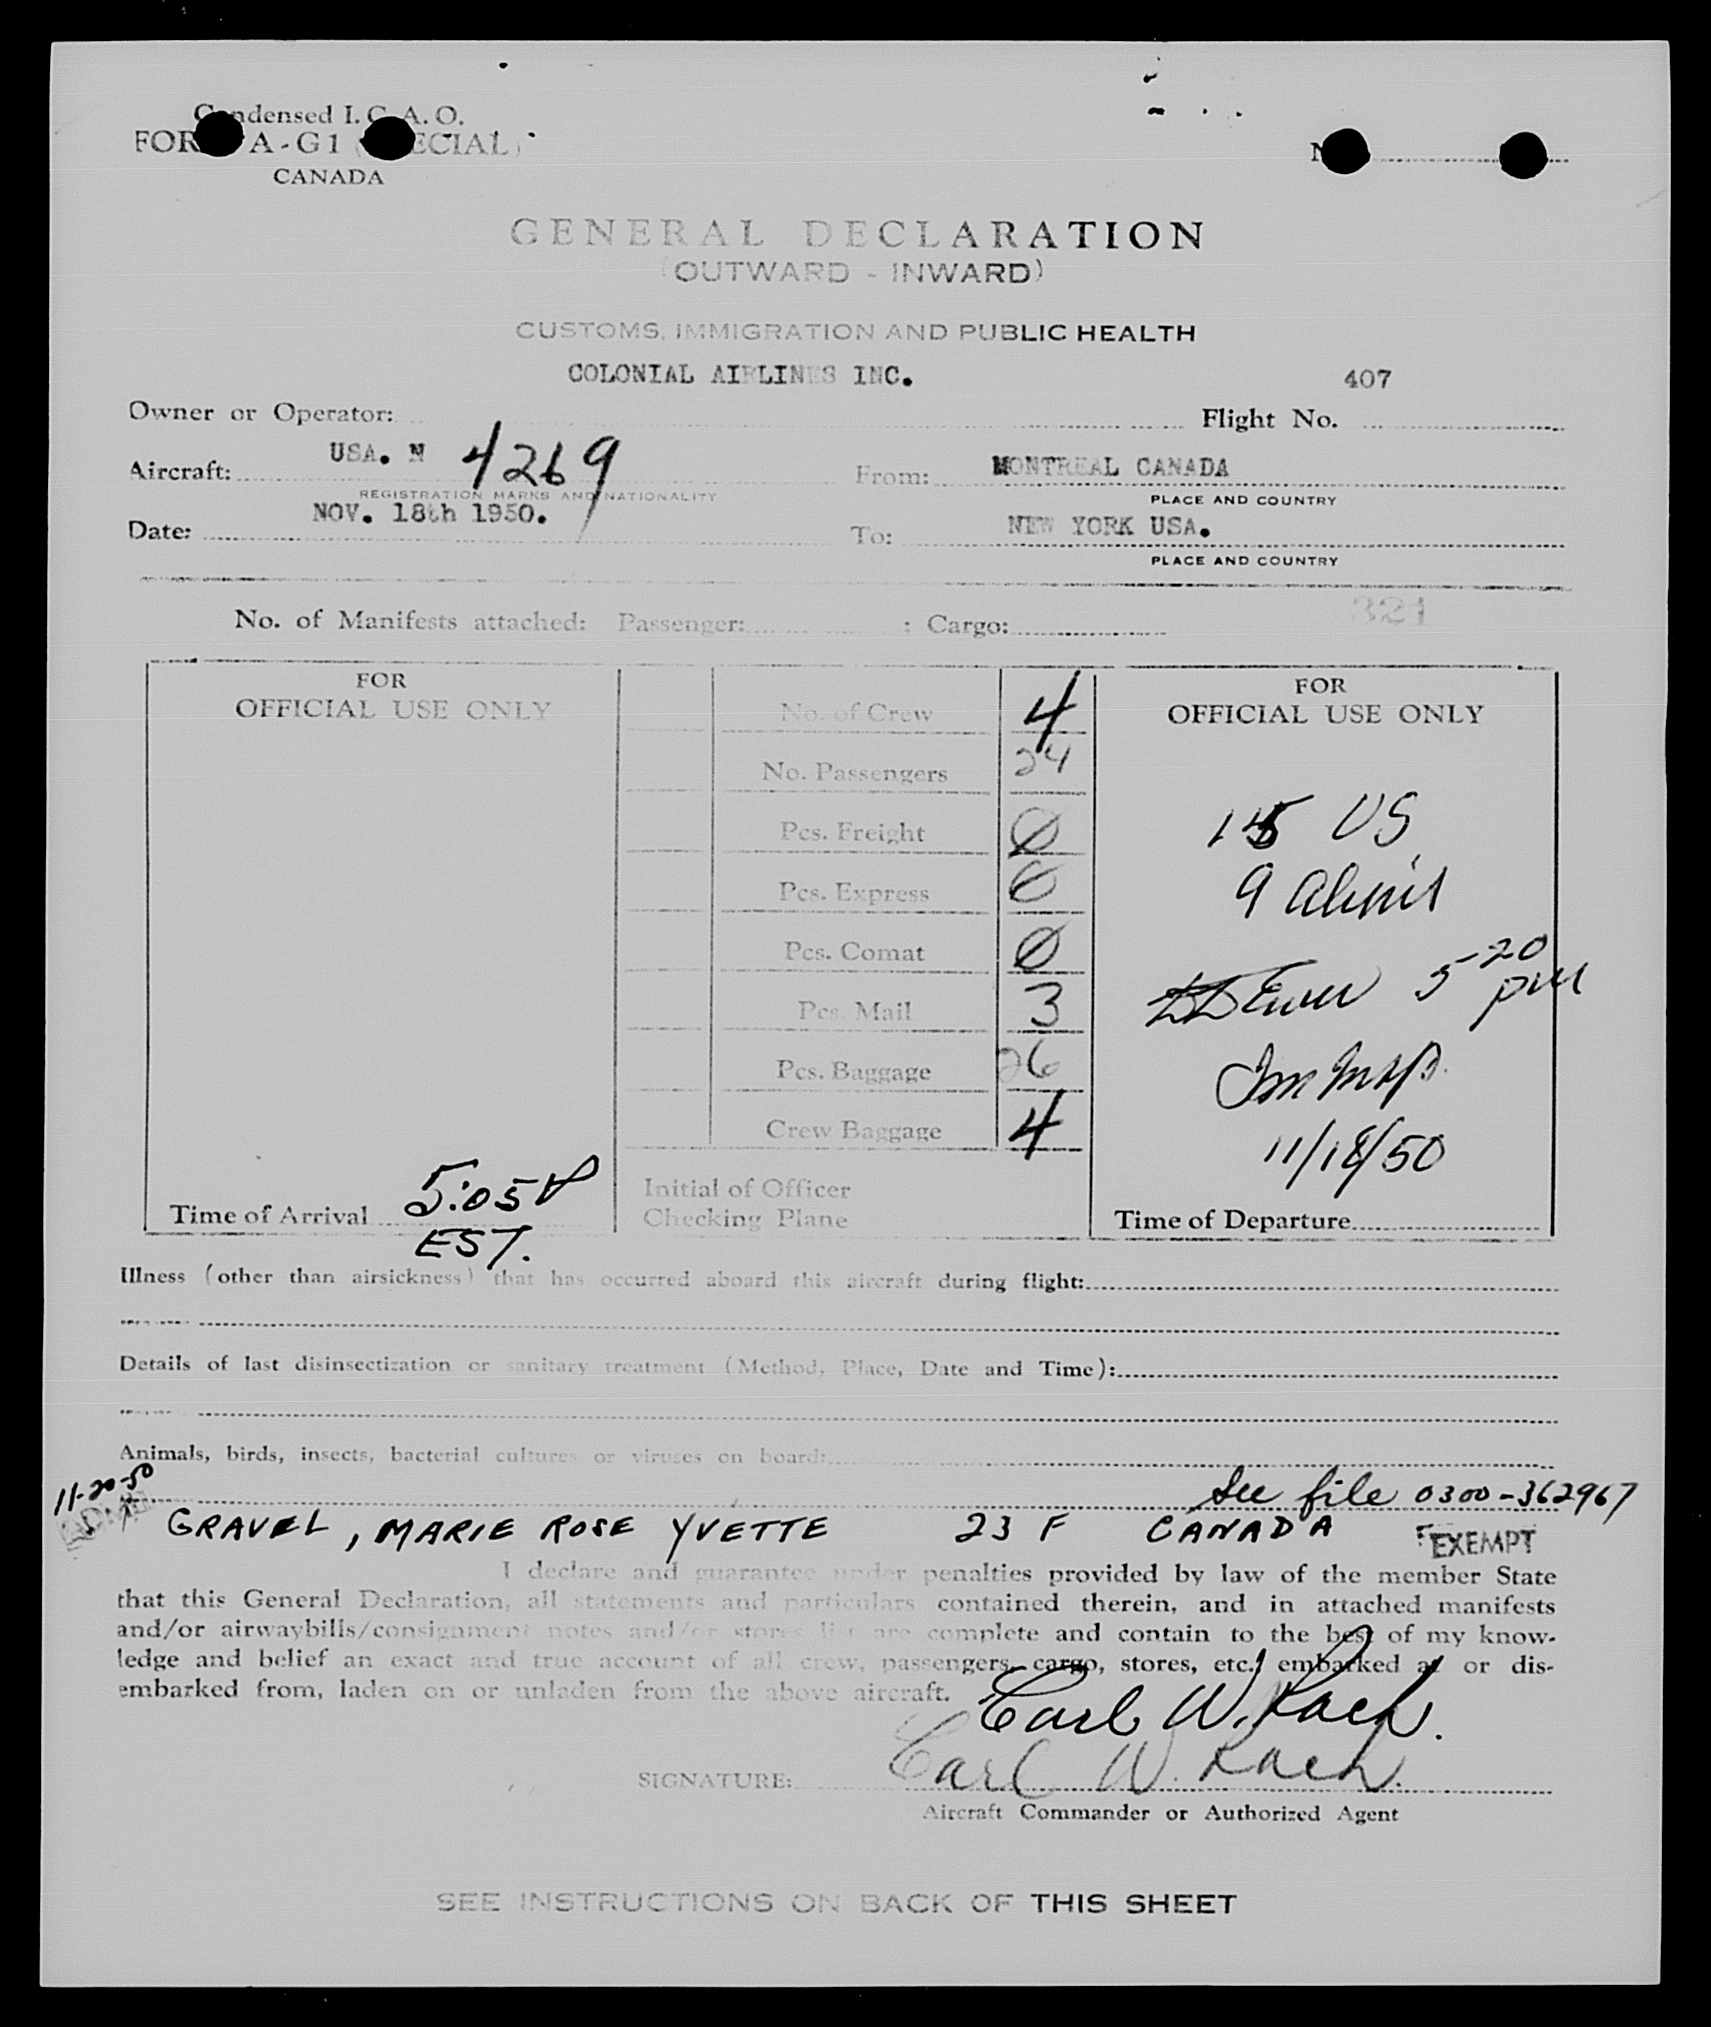 Condensed I. C. A. O.
FORM A-G1 (SPECIAL)
CANADA
GENERAL DECLARATION
(OUTWARD - INWARD)
CUSTOMS, IMMIGRATION AND PUBLIC HEALTH
COLONIAL AIRLINES INC. 407
Owner or Operator: Flight No.
Aircraft: USA. N 4269 From: MONTREAL CANADA
REGISTRATION MARKS AND NATIONALITY PLACE AND COUNTRY
Date: NOV. 18th 1950. To: NEW YORK USA.
PLACE AND COUNTRY
No. of Manifests attached: Passenger: : Cargo: 321
FOR
OFFICIAL USE ONLY
Time of Arrival 5:05 P
EST.
No. of Crew 4
No. Passengers 24
Pcs. Freight 0
Pcs. Express 0
Pcs. Comat 0
Pcs. Mail 3
Pcs. Baggage 26
Crew Baggage 4
Initial of Officer
Checking Plane
FOR
OFFICIAL USE ONLY
15 US
9 Aliens
5-20 pm
Im Insp.
11/18/50
Time of Departure
Illness (other than airsickness) that has occurred aboard this aircraft during flight:
Details of last disinsectization or sanitary treatment (Method, Place, Date and Time):
Animals, birds, insects, bacterial cultures or viruses on board:
11-20-50 See file 0300-362967
ADMD GRAVEL, MARIE ROSE YVETTE 23 F CANADA EXEMPT
I declare and guarantee under penalties provided by law of the member State
that this General Declaration, all statements and particulars contained therein, and in attached manifests
and/or airwaybills/consignment notes and/or stores list are complete and contain to the best of my know-
ledge and belief an exact and true account of all crew, passengers, cargo, stores, etc. embarked at or dis-
embarked from, laden on or unladen from the above aircraft.
Carl W.
SIGNATURE: Carl W.
Aircraft Commander or Authorized Agent
SEE INSTRUCTIONS ON BACK OF THIS SHEET